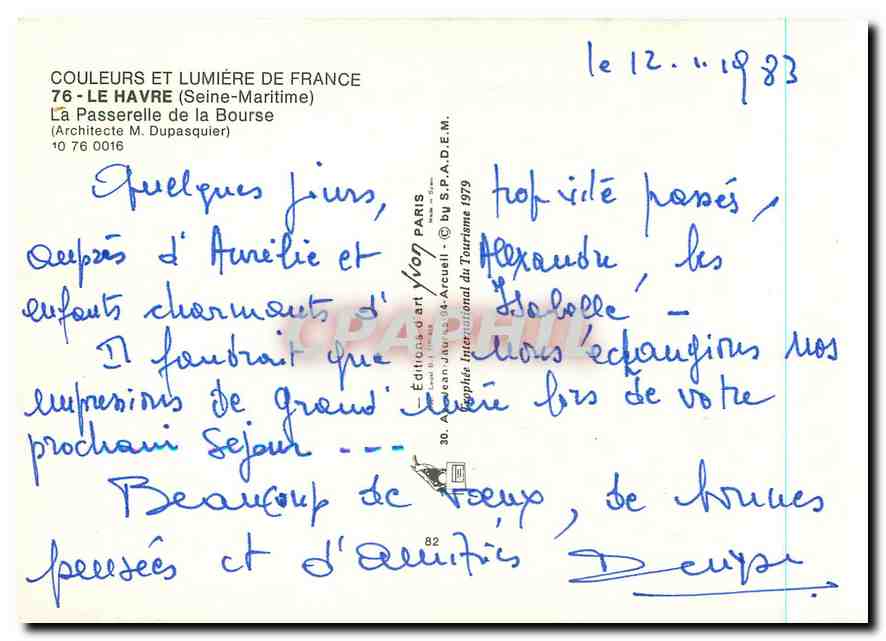 COULEURS ET LUMIÈRE DE FRANCE
76 - LE HAVRE (Seine-Maritime)
La Passerelle de la Bourse
(Architecte M. Dupasquier)
10 76 0016
le 12.1.1983
Quelques jours, trop vite passés,
auprès d'Aurélie et Alexandre, les
enfants charmants d'Isabelle -
Il faudrait que nous échangions nos
impressions de grand'mère lors de votre
prochain séjour ---
Beaucoup de voeux, de bonnes
pensées et d'amitiés Denise
— Éditions d'art Yvon PARIS
30. Av. Jean-Jaurès 94-Arcueil - © by S.P.A.D.E.M.
Trophée International du Tourisme 1979
82
CPAPHIL